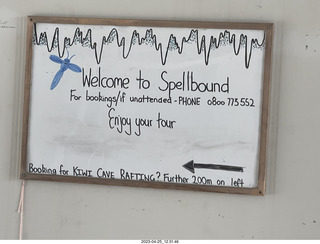 Welcome to Spellbound
For bookings/if unattended - PHONE 0800 773 552
Enjoy your tour
Booking for KIWI CAVE RAFTING? Further 200m on left
2023-04-25_12.51.48